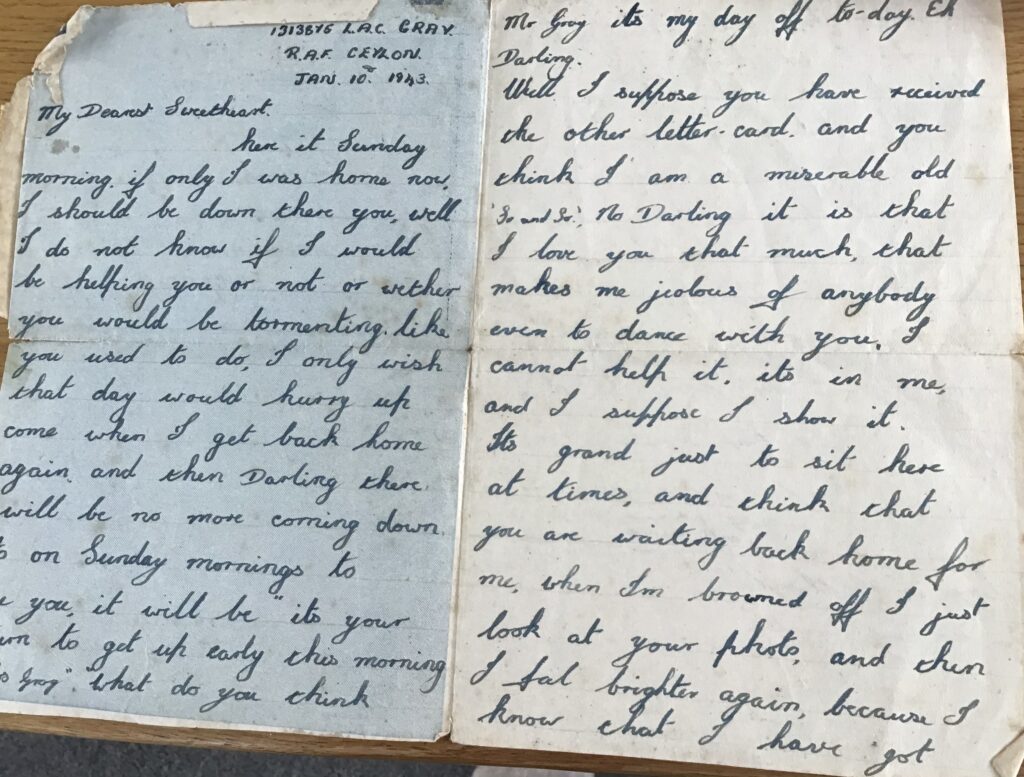 1313876 L.A.C. GRAY.
R.A.F. CEYLON.
JAN. 10TH 1943.
My Dearest Sweetheart.
here it Sunday
morning. if only I was home now,
I should be down there you, well
I do not know if I would
be helping you or not or wether
you would be tormenting. like
you used to do, I only wish
that day would hurry up
come when I get back home
again. and then Darling there.
will be no more coming down.
on Sunday mornings to
you, it will be "its your
to get up early this morning
Gray". What do you think
Mr Gray its my day off to-day. Eh
Darling.
Well I suppose you have received
the other letter-card. and you
think I am a miserable old
'So and So', No Darling it is that
I love you that much, that
makes me jealous of anybody
even to dance with you. I
cannot help it. its in me,
and I suppose I show it.
Its grand just to sit here
at times, and think that
you are waiting back home for
me, when I'm browned off I just
look at your photo, and then
I feel brighter again, because I
know that I have got